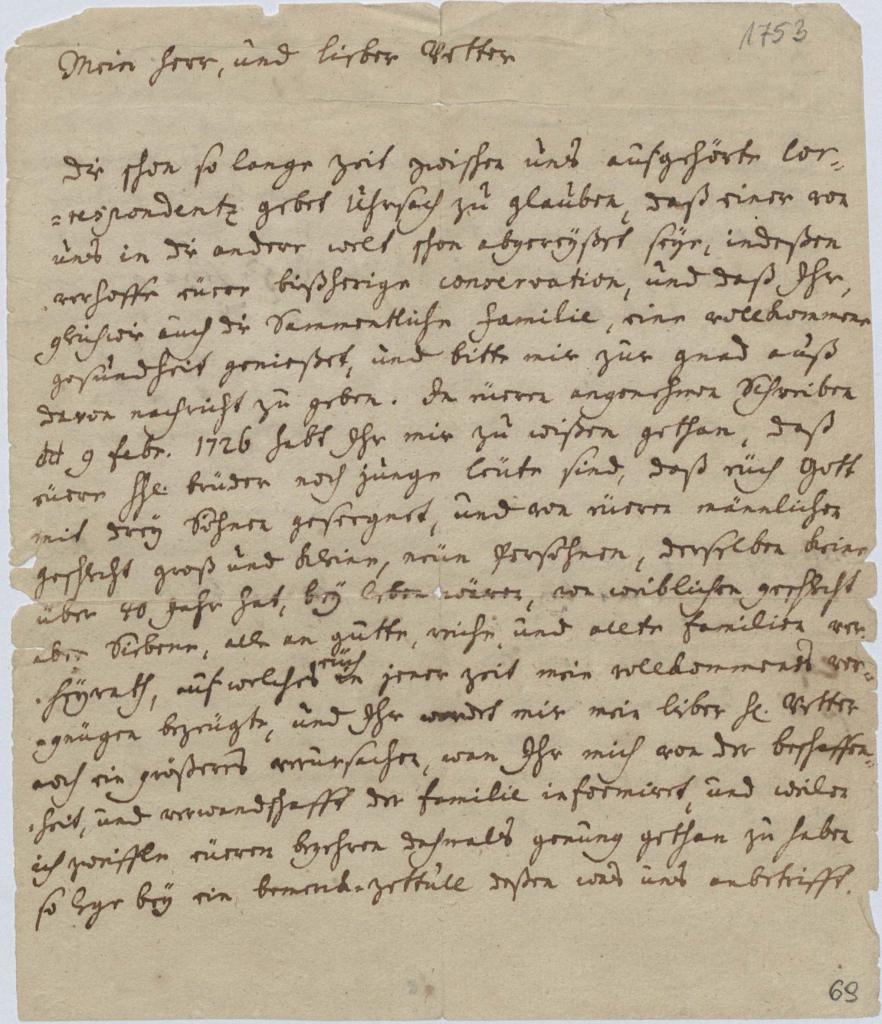 1753
Mein Herr, und lieber Vetter
die schon so lange zeit zwischen uns aufgehörte Cor-
=respondentz gebet Uhrsach zu glauben, daß einer von
uns in die andere welt schon abgereyßet seye, indeßen
verhoffe eüere bißherige conservation, und daß Ihr,
gleichwie auch die Sammentliche familie, eine vollkommene
gesundheit genießet, und bitte mir zur gnad auß
davon nachricht zu geben. In eüeren angenehmen Schreiben
dd 9 febr. 1726 habt Ihr mir zu wißen gethan, daß
eüere HH. brüder noch junge leüte sind, daß eüch Gott
mit drey Söhnen geseegnet, und von eüeren männlichen
geschlecht groß und kleine, neün Persohnen, derselben keine
über 40 Jahr hat, bey leben wären, von weiblichen geschlecht
aber Siebene, alle an gutte, reiche und allte familien ver-
heyrath, auf welches eüch in jener zeit mein vollkommenes ver-
=gnügen bezeügte, und Ihr werdet mir mein lieber H. Vetter
noch ein größeres verursachen, wan Ihr mich von der beschaffen-
heit, und verwandschafft der familie informiret, und weilen
ich zweiffle eüeren begehren dahmals genung gethan zu haben
so lege bey ein bemerk-zettull deßen was uns anbetrifft.
69